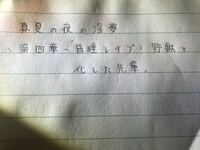 真夏の夜の淫夢
〜第四章〜昏睡レイプ!野獣と
化した先輩。